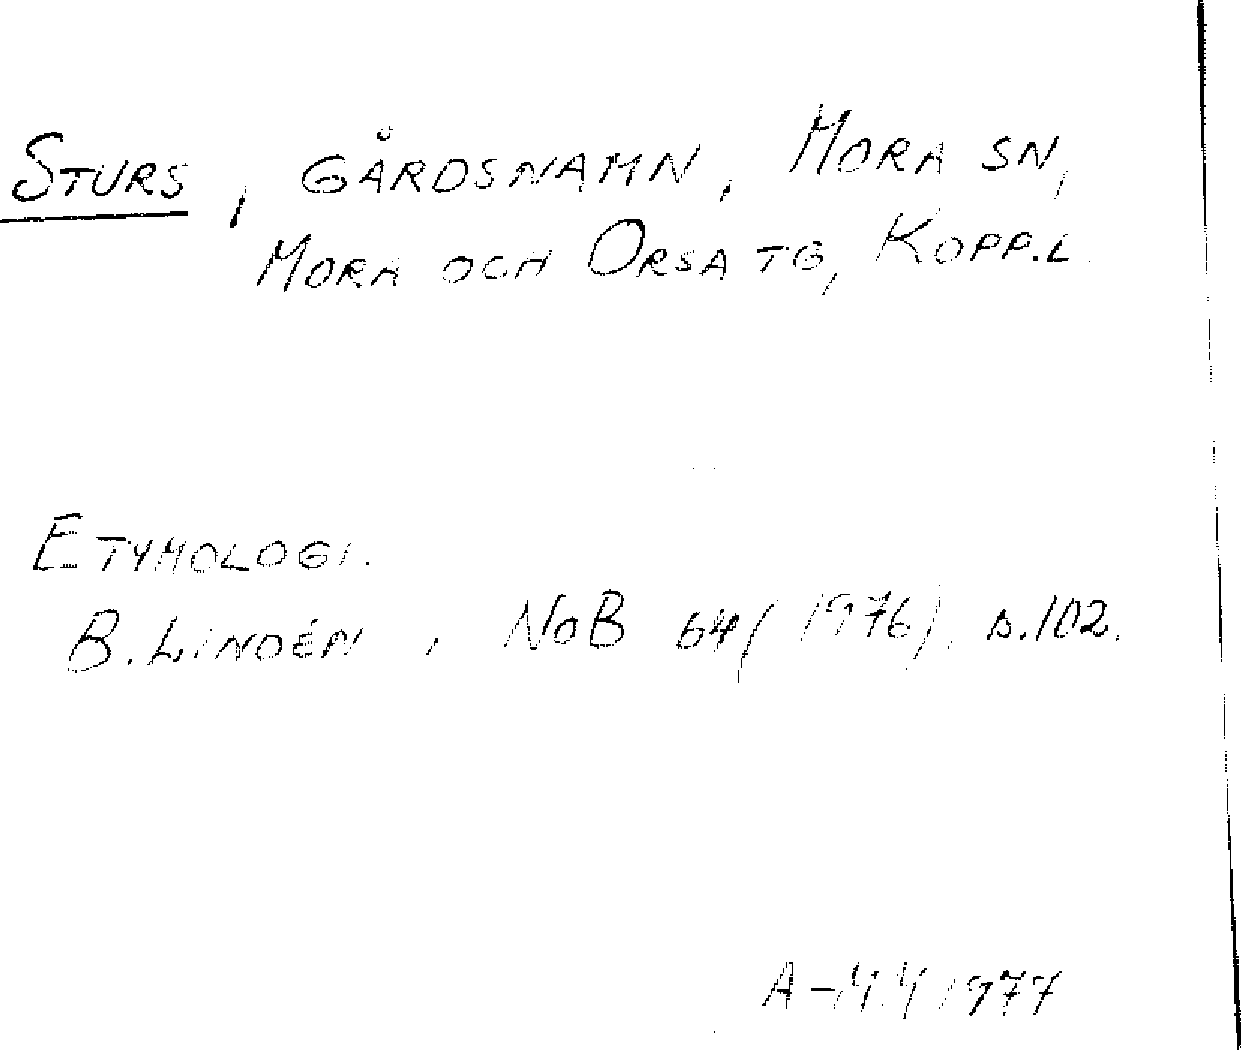 STURS, GÅRDSNAMN, MORA SN,
MORA OCH ORSA TG, KOPP.L.
ETYMOLOGI.
B. LINDÉN, NoB 64 (1976), s. 102.
A-M.Y 1977